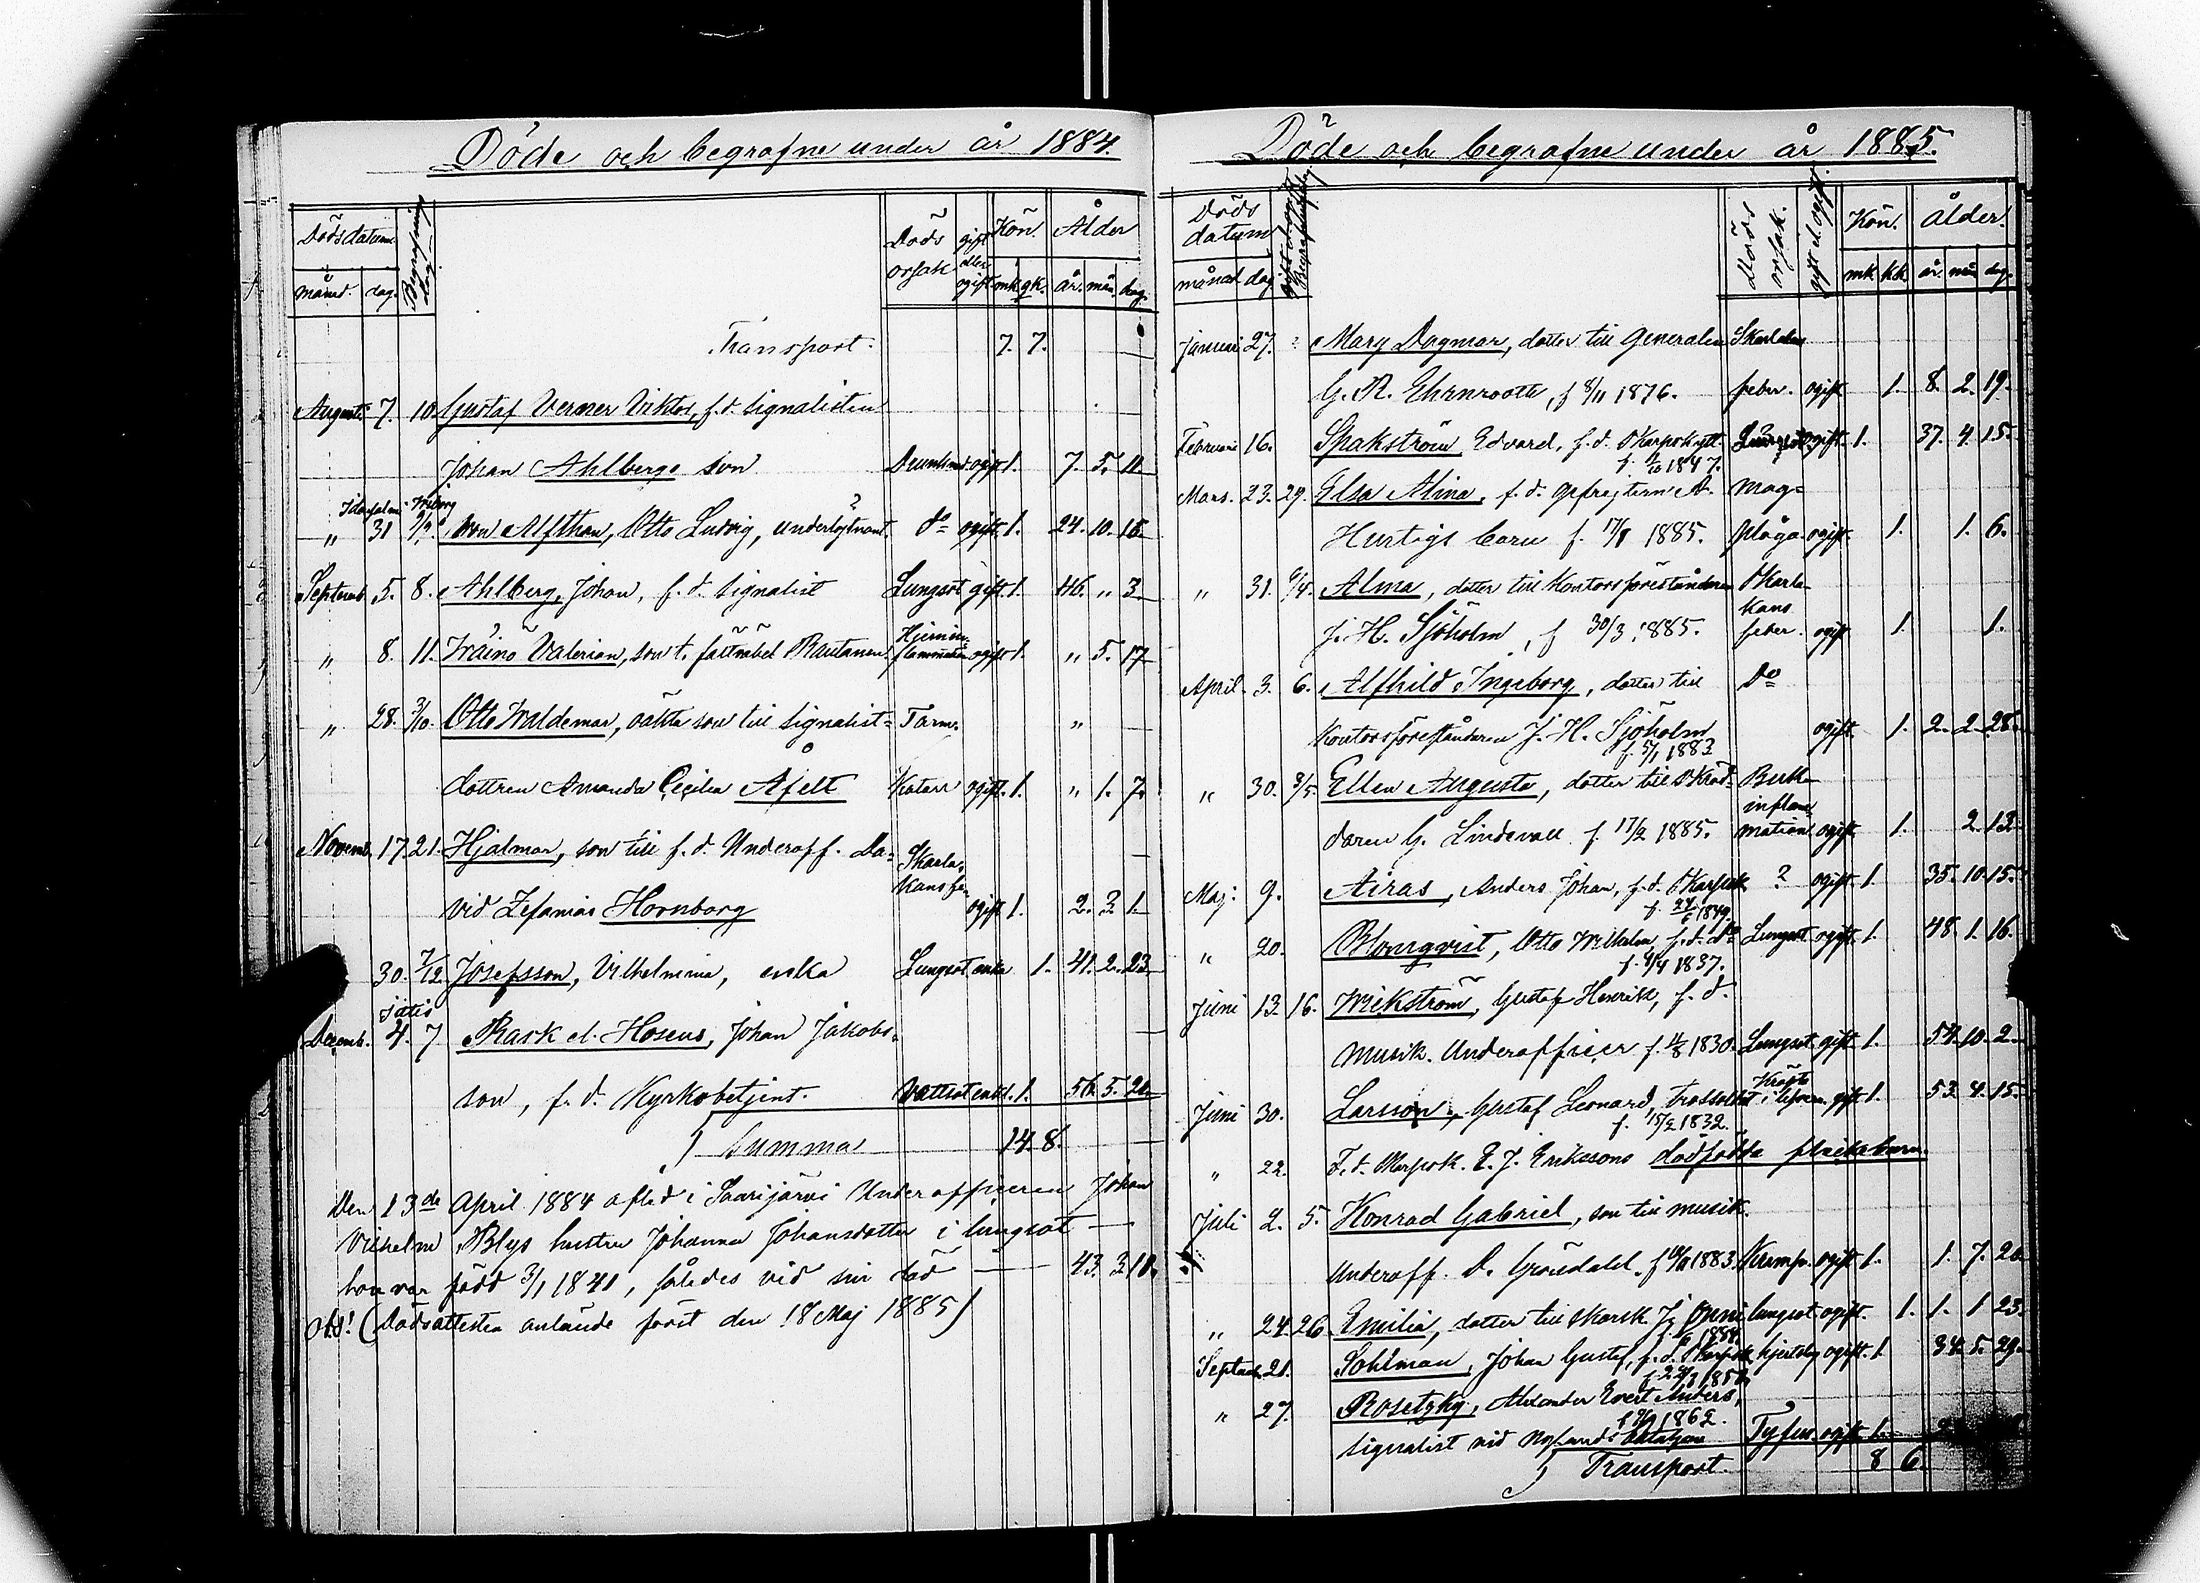 Döde och begrafne under år 1884.
Dödsdatum
Begrafnings dag
Döds orsak
gift eller ogift
Kön.
Ålder
månad. dag. mk. qk. år. mån. dag.
Transport. 7. 7.
Augusti 7. 10. Gustaf Verner Viktor, f.d. signalisten
Johan Ahlbergs son ogift 1. 7. 5. 11.
" 31 von Alfthan, Otto Ludvig, underlöjtnant. do ogift. 1. 24. 10. 16.
Septemb. 5. 8. Ahlberg, Johan, f.d. signalist Lungsot gift. 1. 46. " 3.
" 8. 11. Wäinö Valerian, son t. fältväbel Rautanen. Hjerninflammation ogift 1. " 5. 17
" 28. 3/10. Otto Waldemar, oäkta son till signalist= Tarm- "
dottren Amanda Cecilia Afelt Katarr ogift. 1. " 1. 7.
Novemb. 17. 21. Hjalmar, son till f.d. Underoff. Da= Skarla-
vid Zefanias Hornborg kansfe- ogift 1. 2. 2 1.
30. 7/12. Josefsson, Vilhelmina, enka Lungsot enka 1. 41. 2. 23
Decemb. 4. 7 Rask el. Hoseus, Johan Jakobs=
son, f.d. Kyrkobetjent. Vattsot enkl. 1. 56. 5. 20.
Summa 14. 8.
Den 13de April 1884 afled i Saarijärvi Underofficeren Johan
Vilhelm Blys hustru Johanna Johansdotter i lungsot
hon var född 3/1 1841, således vid sin död 43. 3 10.
Obs! (Dödsattesten anlände först den 18 Maj 1885)
Döde och begrafne under år 1885.
Döds datum
Döds orsak.
gift el. ogift.
Kön. Ålder.
månad dag mk. kk. år. mån. dag.
Januari 27. Mary Dagmar, dotter till Generalen Skarlakans
G. R. Ehrnrooth, f 8/11 1876. feber. ogift 1. 8. 2. 19.
Februari 16. Spakström Edvard, f.d. Skarpskytt Lungsot ogift. 1. 37. 4. 15.
f. 1/10 1847.
Mars. 23. 29. Elsa Alina, f.d. gefrejtern A. Mag=
Hurtigs barn f. 17/1 1885. plåga ogift. 1. 1. 6.
" 31. 6/4. Alma, dotter till Kontorsföreståndaren Skarla-
kans
J. H. Sjöholm, f 30/3 1885. feber. ogift 1. 1.
April. 3. 6. Alfhild Ingeborg, dotter till Do
Kontorsföreståndaren J. H. Sjöholm ogift. 1. 2. 2. 28.
f. 5/1 1883
" 30. 3/5. Ellen Augusta, dotter till Skräd= Buk-
inflam
daren G. Lindevall f. 17/2 1885. mation ogift 1. 2. 13.
Maj: 9. Airas, Anders Johan, f.d. Skarpsk. ? ogift. 1. 35. 10. 15.
1849.
" 20. Blomqvist, Otto Wilhelm, f.d. do Lungsot ogift. 1. 48. 1. 16.
f. 4/4 1837.
Juni 13. 16. Wickström, Gustaf Henrik, f.d.
Musik. Underofficer f. 11/8 1830. Lungsot gift. 1. 54. 10. 2.
Juni 30. Larsson, Gustaf Leonard, trossoldat Kräfta i lefvern. gift 1. 53. 4. 15.
f. 15/2 1832.
" 22. F.d. Skarpsk. E. J. Erikssons dödfödda flickebarn.
Juli 2. 5. Konrad Gabriel, son till musik.
Underoff. D. Gröndahl. 1883. Kramp. ogift 1. 1. 7. 20
" 24. 26. Emilia, dotter till Skarsk. J. lungsot ogift. 1. 1. 1 23.
1884.
Septemb. 21. Sohlman, Johan Gustaf, f.d. Skarpsk. hjertslag ogift. 1. 34. 5. 29.
" 27. Rosetzky, Alexander Evert Anders,
1862.
signalist vid Nylands bataljon Tyfus ogift 1.
Transport. 8 6.